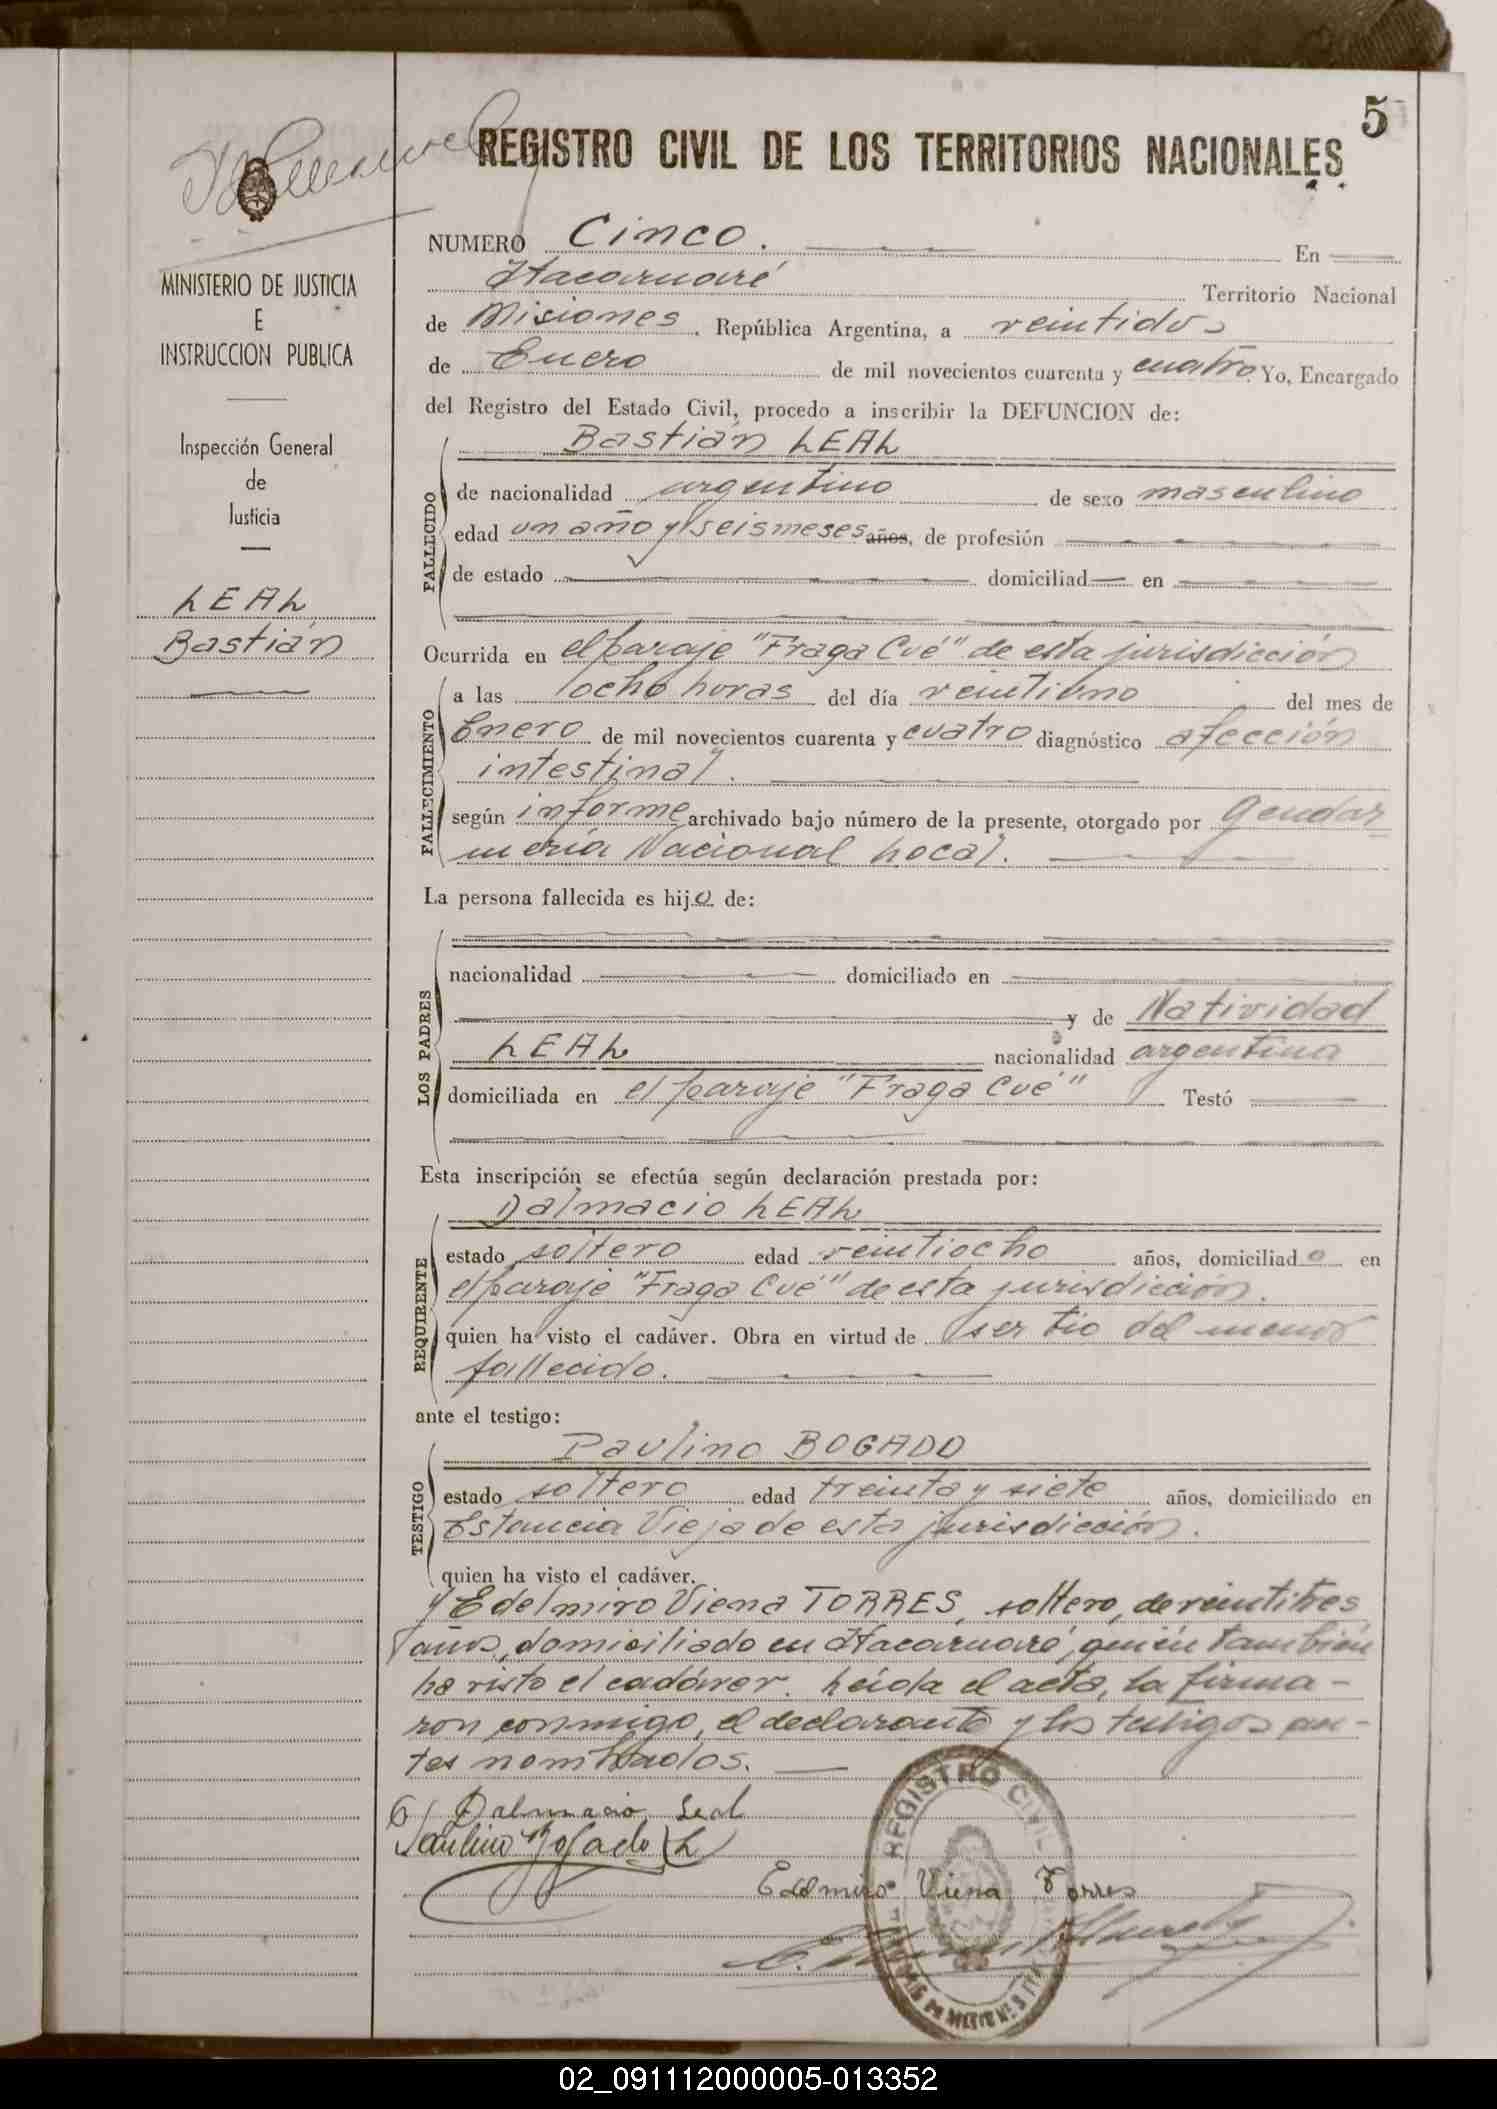 5
REGISTRO CIVIL DE LOS TERRITORIOS NACIONALES
MINISTERIO DE JUSTICIA
E
INSTRUCCION PUBLICA
Inspección General
de
Justicia
LEAL
Bastián
NUMERO Cinco. En
Itacaruaré Territorio Nacional
de Misiones, República Argentina, a veintidos
de Enero de mil novecientos cuarenta y cuatro Yo, Encargado
del Registro del Estado Civil, procedo a inscribir la DEFUNCION de:
Bastián LEAL
FALLECIDO
de nacionalidad argentino de sexo masculino
edad un año y seis meses años, de profesión
de estado domiciliad en
Ocurrida en el paraje "Fraga Cué" de esta jurisdicción
FALLECIMIENTO
a las ocho horas del día veintiuno del mes de
Enero de mil novecientos cuarenta y cuatro diagnóstico afección
intestinal.
según informe archivado bajo número de la presente, otorgado por Gendar
mería Nacional Local.
La persona fallecida es hijo de:
LOS PADRES
nacionalidad domiciliado en
y de Natividad
LEAL nacionalidad argentina
domiciliada en el paraje "Fraga Cué" Testó
Esta inscripción se efectúa según declaración prestada por:
Dalmacio LEAL
REQUIRENTE
estado soltero edad veintiocho años, domiciliado en
el paraje "Fraga Cué" de esta jurisdicción.
quien ha visto el cadáver. Obra en virtud de ser tío del menor
fallecido.
ante el testigo:
Paulino BOGADO
TESTIGO
estado soltero edad treinta y siete años, domiciliado en
Estancia Vieja de esta jurisdicción.
quien ha visto el cadáver.
y Edelmiro Viena TORRES, soltero, de veintitres
años, domiciliado en Itacaruaré, quién también
ha visto el cadáver. Leída el acta, la firma-
ron conmigo, el declarante y los testigos an-
tes nombrados.
Dalmacio Leal
Paulino Bogado
Edelmiro Viena Torres
REGISTRO CIVIL
02_091112000005-013352